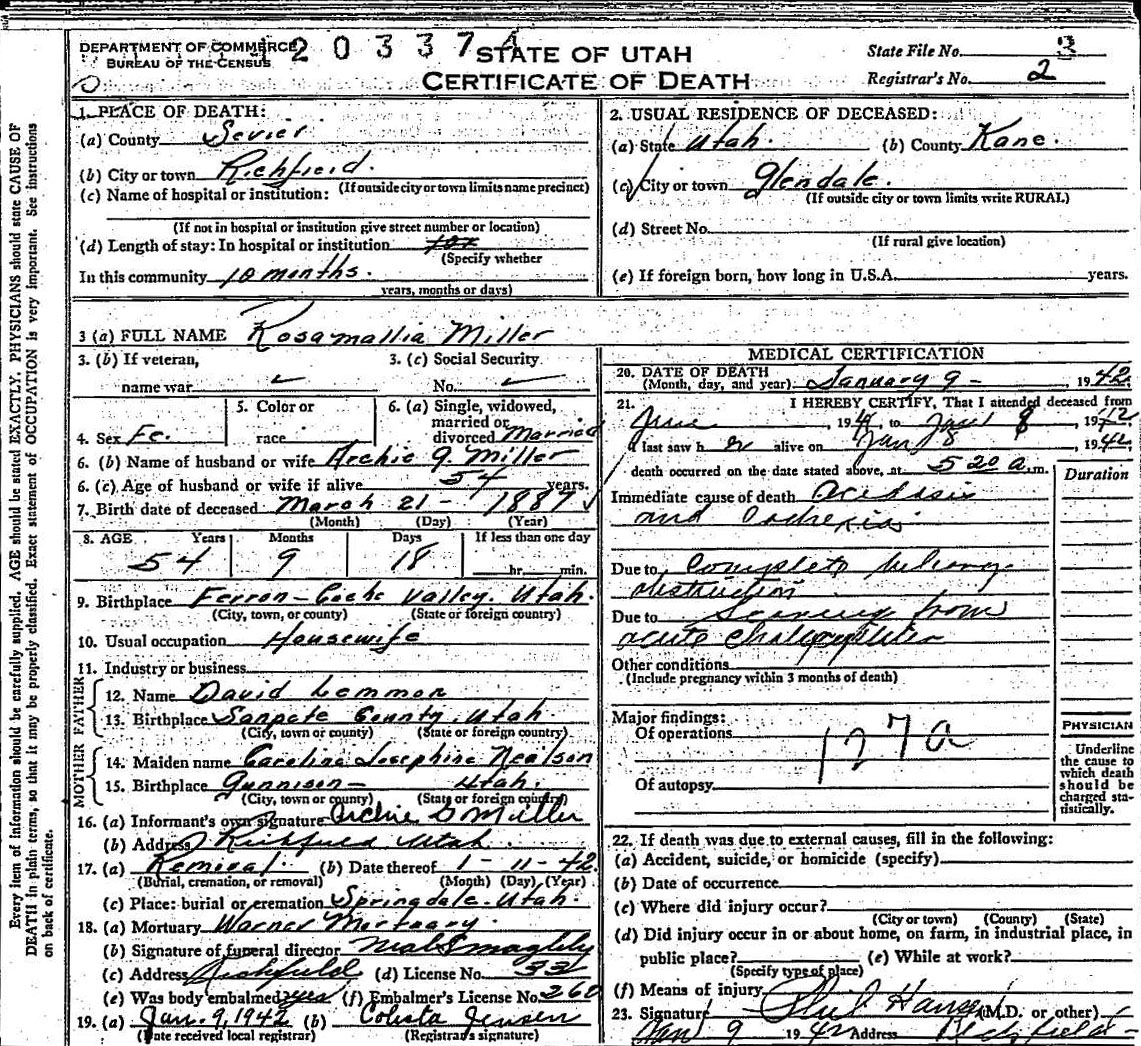 DEPARTMENT OF COMMERCE
BUREAU OF THE CENSUS
20337A
STATE OF UTAH
CERTIFICATE OF DEATH
State File No. 3
Registrar's No. 2
Every item of information should be carefully supplied. AGE should be stated EXACTLY. PHYSICIANS should state CAUSE OF
DEATH in plain terms, so that it may be properly classified. Exact statement of OCCUPATION is very important. See instructions
on back of certificate.
1. PLACE OF DEATH:
(a) County Sevier
(b) City or town Richfield.
(If outside city or town limits name precinct)
(c) Name of hospital or institution:
(If not in hospital or institution give street number or location)
(d) Length of stay: In hospital or institution
(Specify whether
In this community 10 months.
years, months or days)
2. USUAL RESIDENCE OF DECEASED:
(a) State Utah. (b) County Kane.
(c) City or town Glendale.
(If outside city or town limits write RURAL)
(d) Street No.
(If rural give location)
(e) If foreign born, how long in U.S.A. years.
3 (a) FULL NAME Rosamallia Miller
3. (b) If veteran,
name war
3. (c) Social Security
No.
4. Sex Fe.
5. Color or
race
6. (a) Single, widowed,
married or
divorced Married
6. (b) Name of husband or wife Archie G. Miller
6. (c) Age of husband or wife if alive 54 years.
7. Birth date of deceased March 21 - 1887
(Month) (Day) (Year)
8. AGE Years Months Days If less than one day
54 9 18 hr. min.
9. Birthplace Ferron - Cache Valley. Utah.
(City, town, or county) (State or foreign country)
10. Usual occupation Housewife
11. Industry or business
FATHER
12. Name David Lemmon
13. Birthplace Sanpete County. Utah.
(City, town or county) (State or foreign country)
MOTHER
14. Maiden name Caroline Josephine Neilson
15. Birthplace Gunnison - Utah.
(City, town or county) (State or foreign country)
16. (a) Informant's own signature Archie G Miller
(b) Address Richfield Utah
17. (a) Removal. (b) Date thereof 1 - 11 - 42.
(Burial, cremation, or removal) (Month) (Day) (Year)
(c) Place: burial or cremation Springdale. Utah.
18. (a) Mortuary Warner Mortuary.
(b) Signature of funeral director
(c) Address Richfield (d) License No. 33
(e) Was body embalmed? yes (f) Embalmer's License No. 260
19. (a) Jan. 9, 1942 (b) Colista Jensen
(Date received local registrar) (Registrar's signature)
MEDICAL CERTIFICATION
20. DATE OF DEATH
(Month, day, and year) January 9 - , 1942.
21. I HEREBY CERTIFY, That I attended deceased from
June , 1941, to Jan 8 , 1942,
I last saw her alive on Jan 8 , 1942,
death occurred on the date stated above, at 5 20 a.m.
Duration
Immediate cause of death Acidosis
and Cachexia
Due to Complete biliary
obstruction
Due to Scarring from
acute
Other conditions
(Include pregnancy within 3 months of death)
Major findings:
Of operations
127a
Of autopsy
PHYSICIAN
Underline
the cause to
which death
should be
charged sta-
tistically.
22. If death was due to external causes, fill in the following:
(a) Accident, suicide, or homicide (specify)
(b) Date of occurrence
(c) Where did injury occur?
(City or town) (County) (State)
(d) Did injury occur in or about home, on farm, in industrial place, in
public place? (e) While at work?
(Specify type of place)
(f) Means of injury
23. Signature Hansen (M.D. or other)
Jan 9 1942 Address Richfield